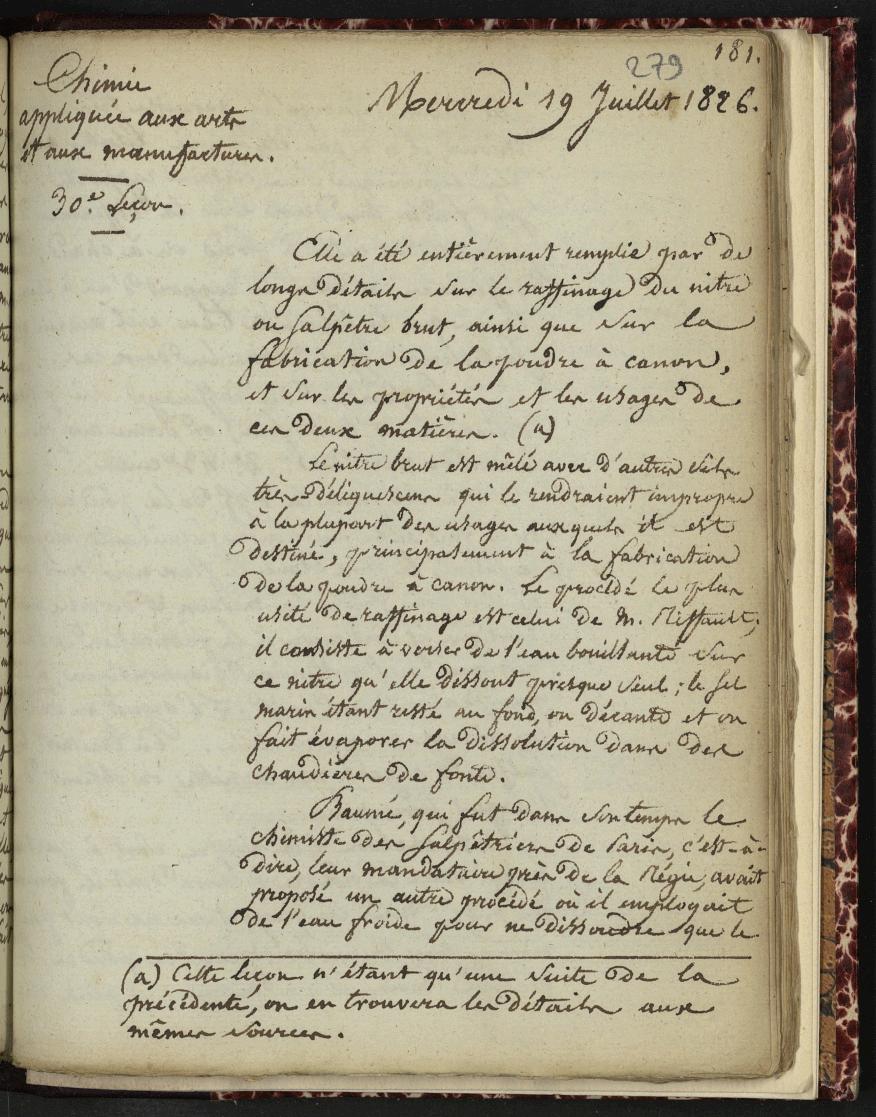 181.
279
Chimie
appliquée aux arts
et aux manufactures.
30.e Leçon.
Mercredi 19 Juillet 1826.
Elle a été entièrement remplie par de
longs détails sur le raffinage du nitre
ou salpêtre brut, ainsi que sur la
fabrication de la poudre à canon,
et sur les propriétés et les usages de
ces deux matières. (a)
Le nitre brut est mêlé avec d'autres sels
très déliquescens qui le rendraient impropre
à la plupart des usages auxquels il est
destiné, principalement à la fabrication
de la poudre à canon. Le procédé le plus
usité de raffinage est celui de M. Riffault;
il consiste à verser de l'eau bouillante sur
ce nitre qu'elle dissout presque seul; le sel
marin étant resté au fond, on décante et on
fait évaporer la dissolution dans des
chaudières de fonte.
Baumé, qui fut dans son temps le
chimiste des salpêtriers de Paris, c'est-à-
dire, leur mandataire près de la Régie, avait
proposé un autre procédé où il employait
de l'eau froide pour ne dissoudre que le
(a) Cette leçon n'étant qu'une suite de la
précédente, on en trouvera les détails aux
mêmes sources.